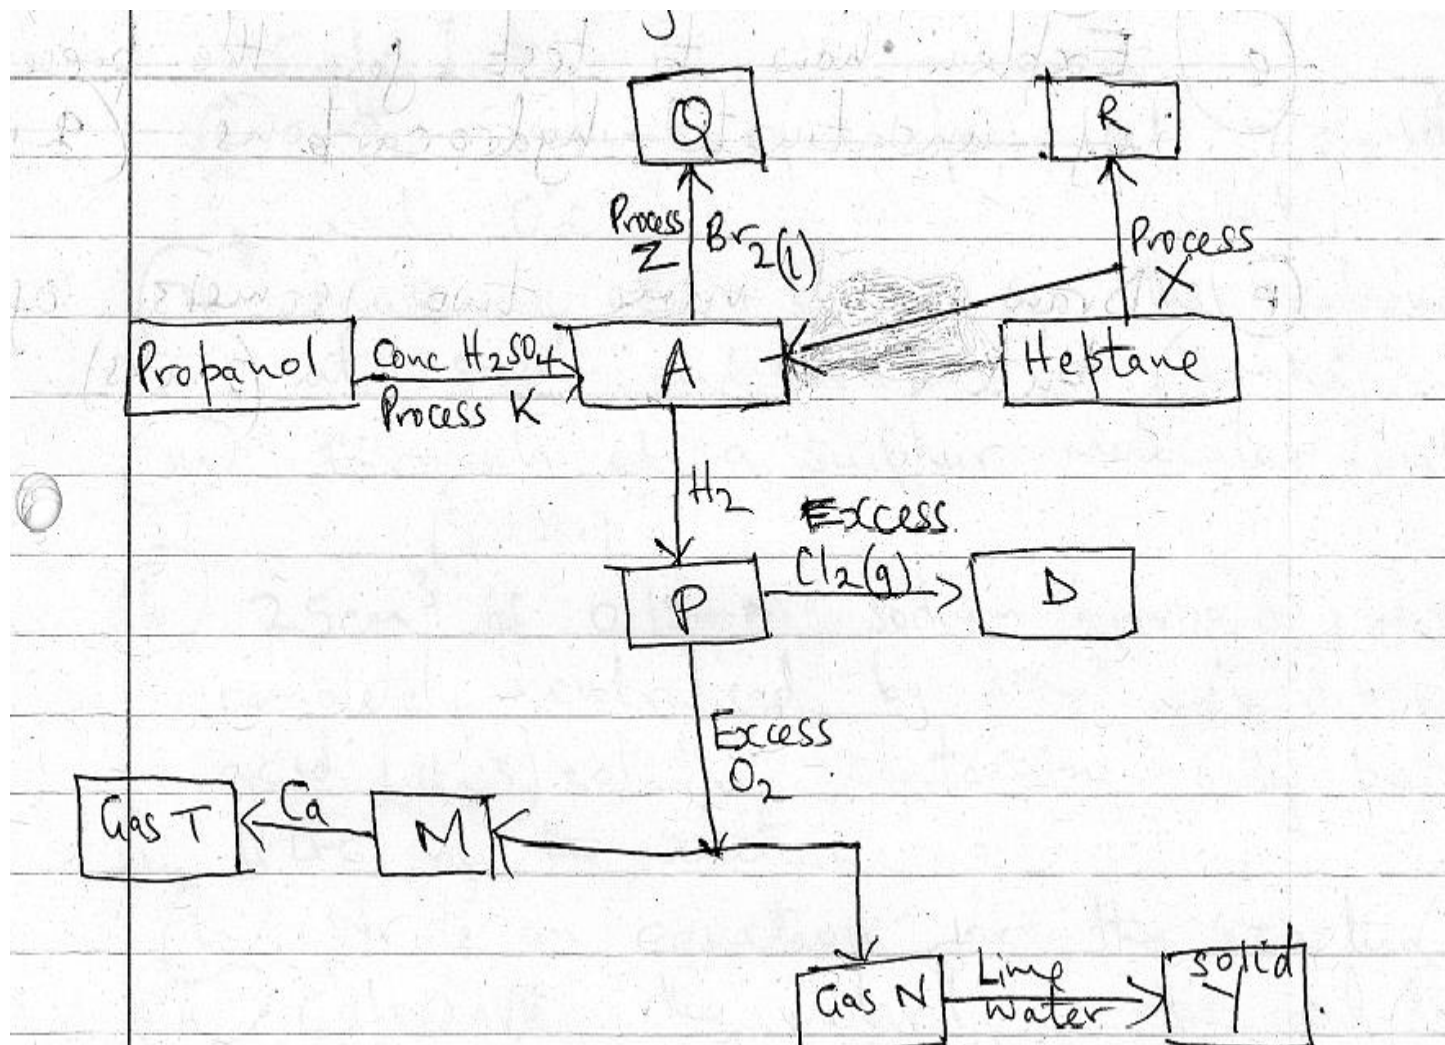 Q
R
Process
Z
Br2(l)
Process
X
Propanol
Conc H2SO4
Process K
A
Heptane
H2
Excess
Cl2(g)
P
D
Excess
O2
Gas T
Ca
M
Gas N
Lime
water
Solid
Y